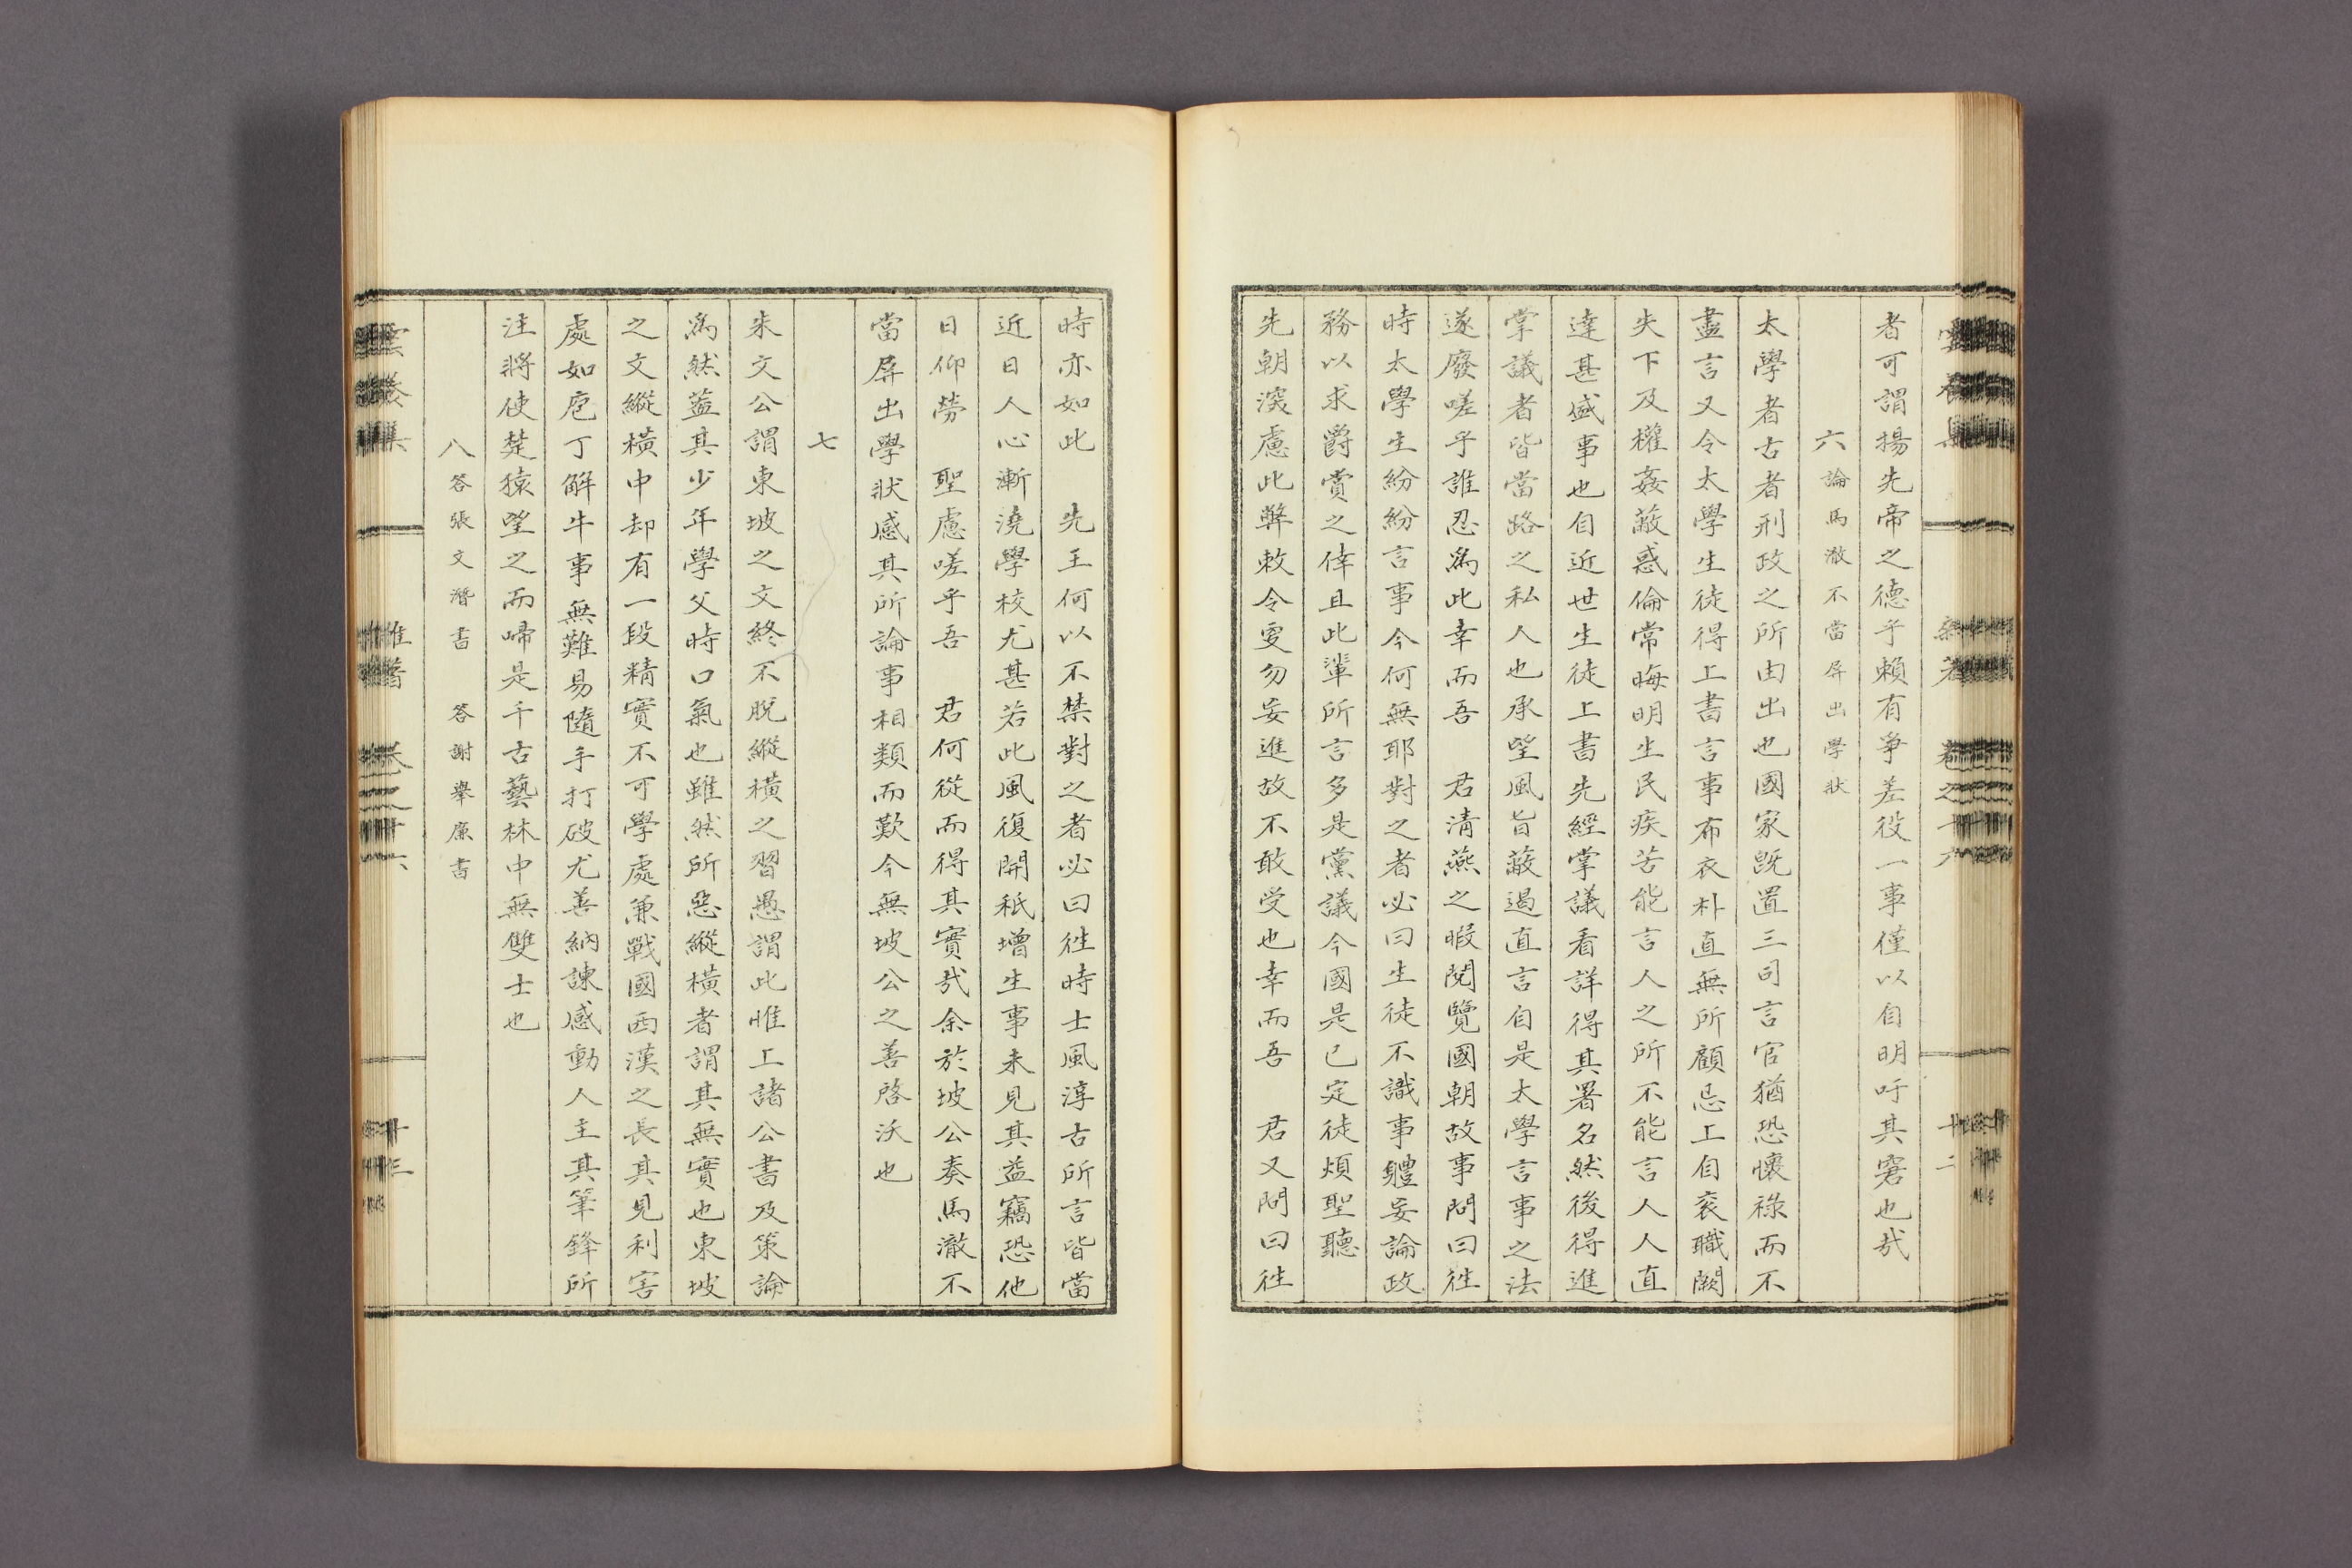 者可謂揚先帝之德乎賴有爭差役一事僅以自明吁其窘也哉
六 論馬澈不當屏出學狀
太學者古者刑政之所由出也國家既置三司言官猶恐懷祿而不
盡言又令太學生徒得上書言事布衣朴直無所顧忌上自袞職闕
失下及權姦蔽惑倫常晦明生民疾苦能言人之所不能言人人直
達甚盛事也自近世生徒上書先經掌議看詳得其署名然後得進
掌議者皆當路之私人也承望風旨蔽遏直言自是太學言事之法
遂廢嗟乎誰忍爲此幸而吾 君清燕之暇閱覽國朝故事問曰徃
時太學生紛紛言事今何無耶對之者必曰生徒不識事軆妄論政
務以求爵賞之倖且此輩所言多是黨議今國是已定徒煩聖聽
先朝深慮此弊敕令更勿妄進故不敢受也幸而吾 君又問曰徃
時亦如此 先王何以不禁對之者必曰徃時士風淳古所言皆當
近日人心漸澆學校尤甚若此風復開秖增生事未見其益竊恐他
日仰勞 聖慮嗟乎吾 君何從而得其實哉余於坡公奏馬澈不
當屏出學狀感其所論事相類而歎今無坡公之善啓沃也
七
朱文公謂東坡之文終不脫縱橫之習愚謂此惟上諸公書及策論
爲然葢其少年學父時口氣也雖然所惡縱橫者謂其無實也東坡
之文縱橫中却有一段精實不可學處兼戰國西漢之長其見利害
處如庖丁解牛事無難易隨手打破尤善納諫感動人主其筆鋒所
注將使楚猿望之而啼是千古藝林中無雙士也
八 答張文潛書 答謝擧廉書